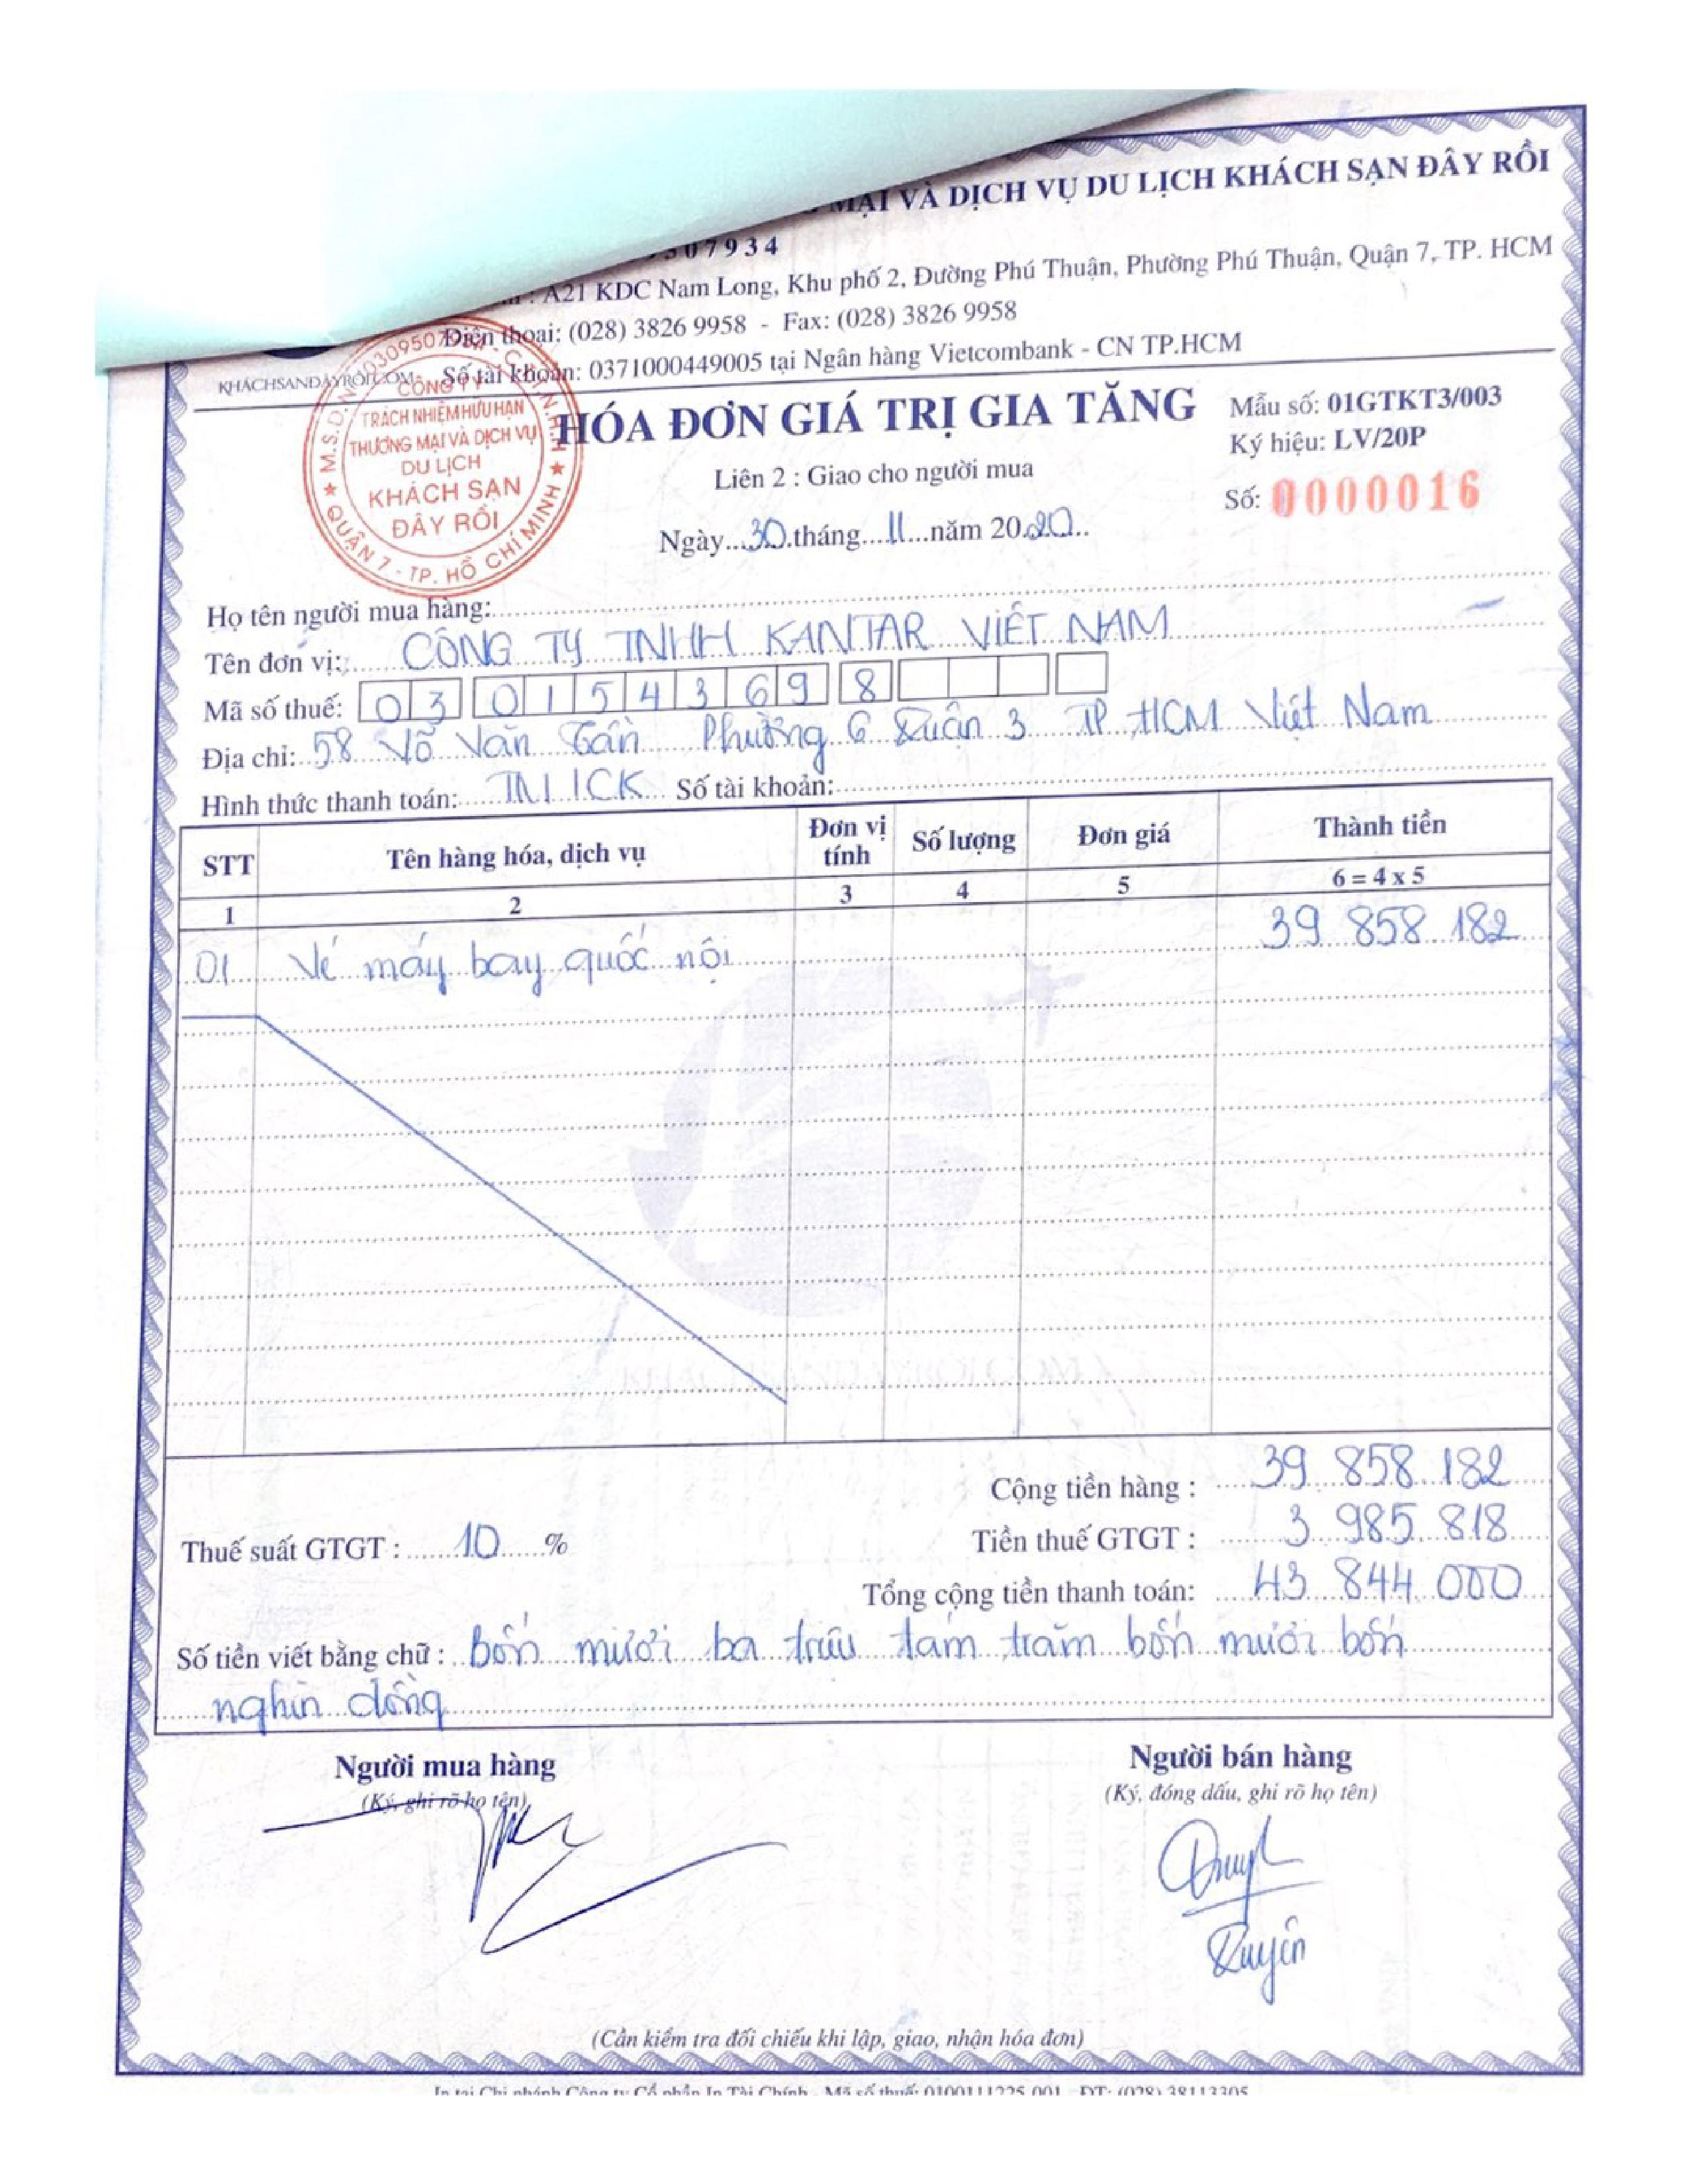 MẠI VÀ DỊCH VỤ DU LỊCH KHÁCH SẠN ĐÂY RỒI
507934
: A21 KDC Nam Long, Khu phố 2, Đường Phú Thuận, Phường Phú Thuận, Quận 7, TP. HCM
Điện thoại: (028) 3826 9958 - Fax: (028) 3826 9958
Số tài khoản: 0371000449005 tại Ngân hàng Vietcombank - CN TP.HCM
KHÁCHSANDÂYRỒI.COM
M.S.D.N: 0309507934 - C.T.T.N.H.H
CÔNG TY
TRÁCH NHIỆM HỮU HẠN
THƯƠNG MẠI VÀ DỊCH VỤ
DU LỊCH
KHÁCH SẠN
ĐÂY RỒI
QUẬN 7 - TP. HỒ CHÍ MINH
HÓA ĐƠN GIÁ TRỊ GIA TĂNG
Mẫu số: 01GTKT3/003
Ký hiệu: LV/20P
Liên 2 : Giao cho người mua
Số: 0000016
Ngày...30.tháng....11...năm 20.20..
Họ tên người mua hàng:
Tên đơn vị: CÔNG TY TNHH KANTAR VIỆT NAM
Mã số thuế: 03 01543698
Địa chỉ: 58 Võ Văn Tần Phường 6 Quận 3 TP. HCM Việt Nam
Hình thức thanh toán: TM/CK Số tài khoản:
STT Tên hàng hóa, dịch vụ Đơn vị tính Số lượng Đơn giá Thành tiền
1 2 3 4 5 6 = 4 x 5
01 Vé máy bay quốc nội 39 858 182
Cộng tiền hàng : 39 858 182
Thuế suất GTGT : 10 % Tiền thuế GTGT : 3 985 818
Tổng cộng tiền thanh toán: 43 844 000
Số tiền viết bằng chữ : Bốn mươi ba triệu tám trăm bốn mươi bốn
nghìn đồng
Người mua hàng Người bán hàng
(Ký, ghi rõ họ tên) (Ký, đóng dấu, ghi rõ họ tên)
Quyên
(Cần kiểm tra đối chiếu khi lập, giao, nhận hóa đơn)
In tại Chi nhánh Công ty Cổ phần In Tài Chính - Mã số thuế: 0100111225 001 - ĐT: (028) 38113305